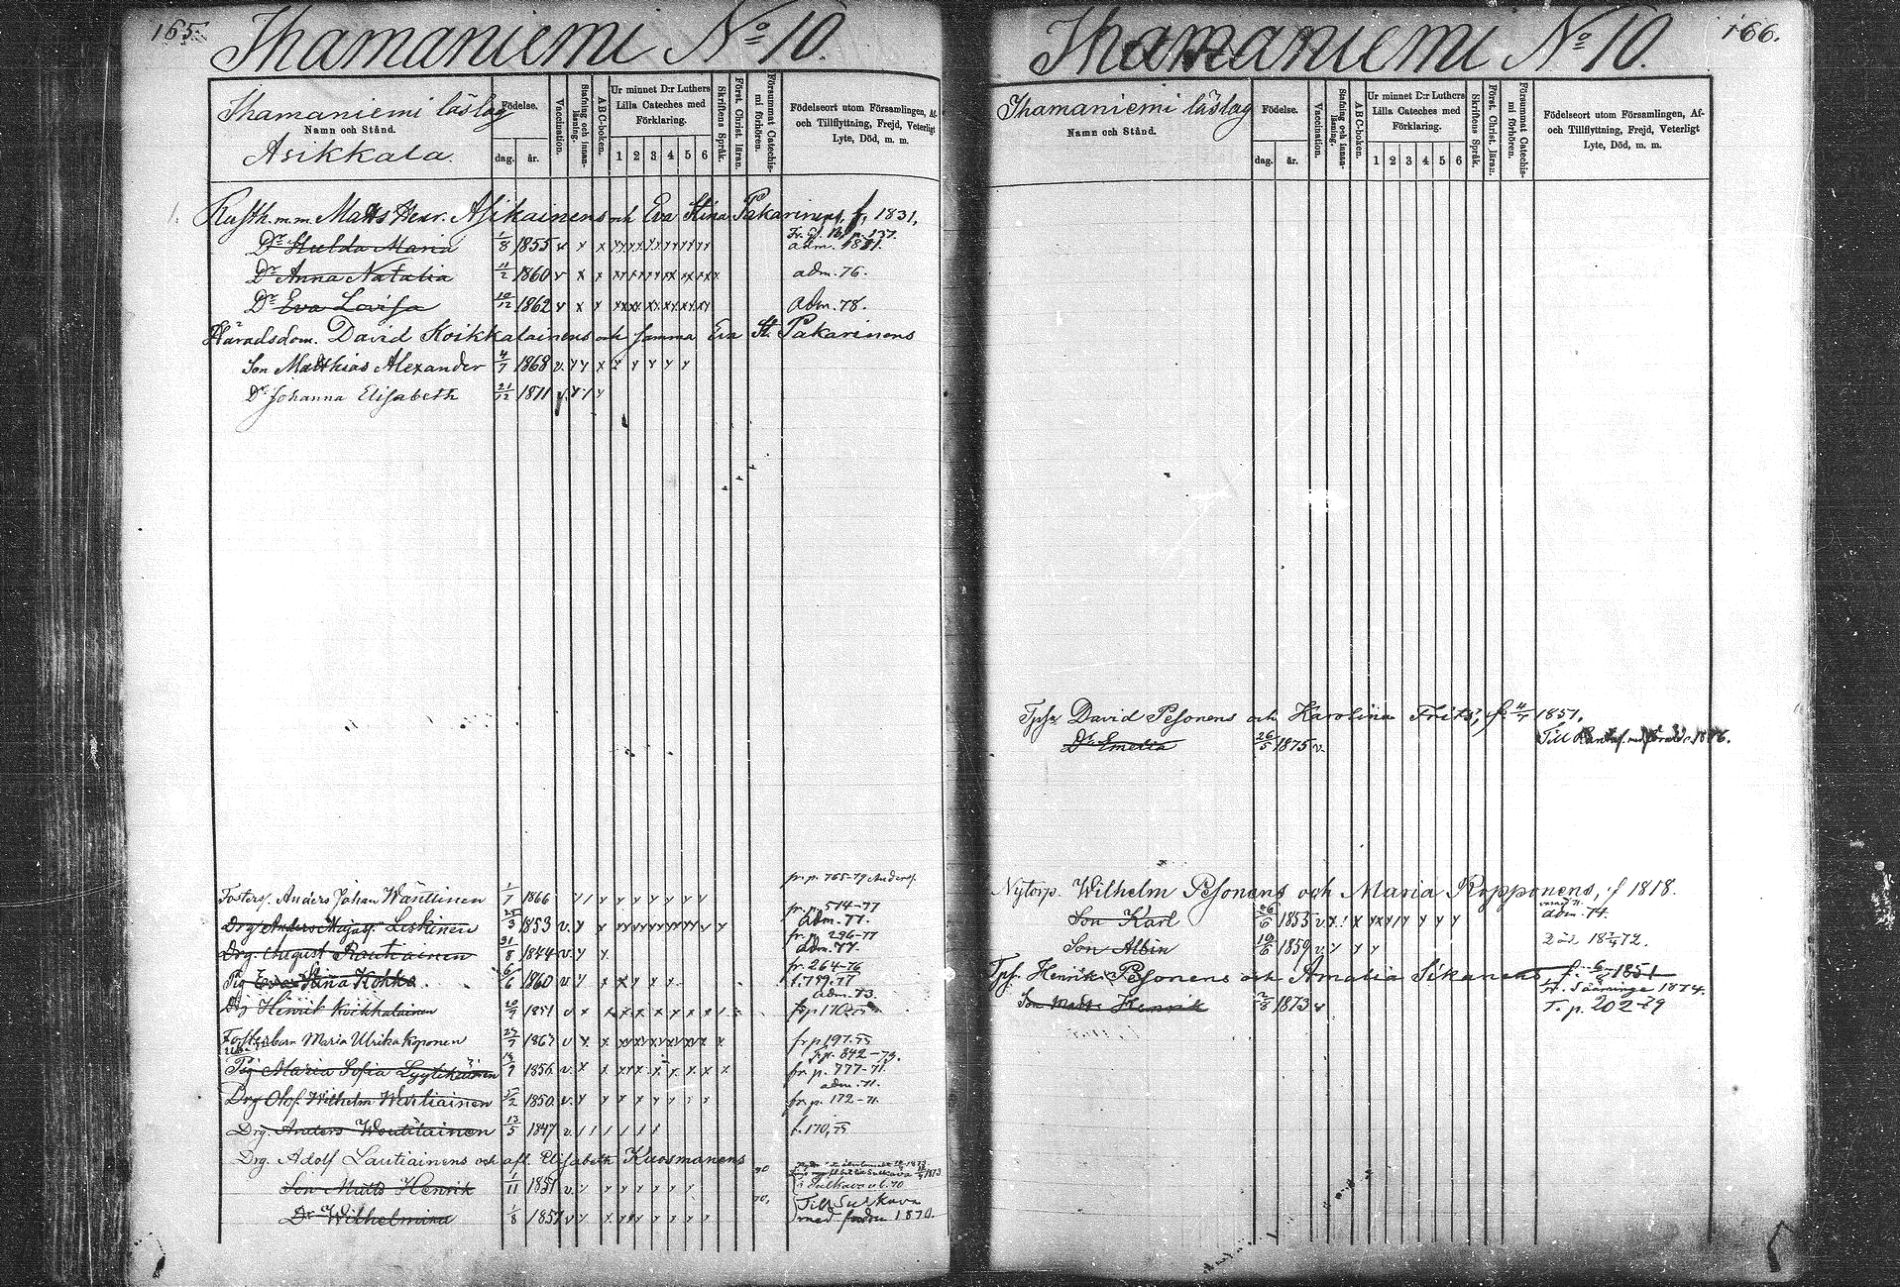 165.
Ihamaniemi No 10.
Ihamaniemi läslag
Namn och Stånd.
Asikkala.
Födelse.
dag. år.
Vaccination.
Stafning och innan-läsning.
ABC-boken.
Ur minnet D:r Luthers
Lilla Cateches med
Förklaring.
1 2 3 4 5 6
Skriftens Språk.
Först. Christ. läran.
Försummat Catechis-mi förhören.
Födelseort utom Församlingen, Af-
och Tillflyttning, Frejd, Veterligt
Lyte, Död, m. m.
1. Rusth. m.m. Matts Henr. Asikainens och Eva Stina Pakarinens, f. 1831,
Dr Hulda Maria 1/8 1855 v adm. 1871.
Dr Anna Natalia 11/2 1860 v adm. 76.
Dr Eva Lovisa 10/12 1862 v adm. 78.
Häradsdom. David Koikkalainens och samma Eva St. Pakarinens
Son Matthias Alexander 4/7 1868 v.
Dr Johanna Elisabeth 21/12 1871 v.
fr. p. 765-79
Fosters. Anders Johan Wänttinen 1/7 1866
fr. p. 514-77
Drg Anders Leskinen 1853 v. adm. 71.
fr. p. 296-77
Drg. August Rautiainen 31/8 1844 v. adm. 77.
fr. 264-76
Pig Eva Stina Kokko 6/6 1860 v
adm. 73.
Drg Henrik Koikkalainen 1851 v
Fosterbarn Maria Ulrika Koponen 27/7 1867 v fr p 197.75
fr p. 842-73.
Pig Maria Sofia Lyytikäinen 1856 v. fr. p. 777-71.
adm. 71.
Drg Olof Wilhelm Wartiainen 1850 v. fr. p. 172-71.
Drg. Anders Woutilainen 13/5 1847 v. f. 170,75
Drg. Adolf Lautiainens och afl. Elisabeth Kuosmanens
Son Matts Henrik 1/11 1851 v. i Sulkava
Dr Wilhelmina 1/8 1857 v Till Sulkava
med fadren 1870.
166.
Ihamaniemi No 10.
Ihamaniemi läslag
Namn och Stånd.
Födelse.
dag. år.
Vaccination.
Stafning och innan-läsning.
ABC-boken.
Ur minnet D:r Luthers
Lilla Cateches med
Förklaring.
1 2 3 4 5 6
Skriftens Språk.
Först. Christ. läran.
Försummat Catechis-mi förhören.
Födelseort utom Församlingen, Af-
och Tillflyttning, Frejd, Veterligt
Lyte, Död, m. m.
David Pesonens och Karolina Frits, f. 4/7 1857,
Dr Emelia 26/5 1875 v. Till 1876.
Nytorp. Wilhelm Pesonens och Maria Kopponens, f 1818.
Son Karl 26/6 1853 v. adm. 74.
Son Albin 19/6 1859 v. Död
Henrik Pesonens och Amalia Sikanens f. 1851
fr. Sääminge 1874.
Son Matts Henrik 1873 v T. p. 202-79